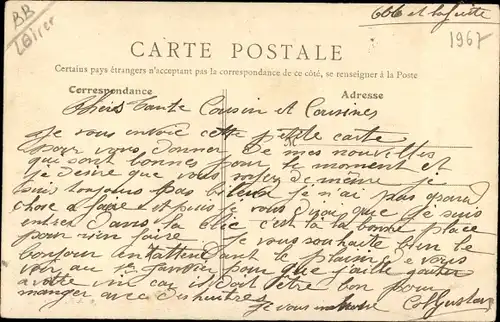 BB
Loiret
606 et la suite
1967
CARTE POSTALE
Certains pays étrangers n'acceptant pas la correspondance de ce côté, se renseigner à la Poste
Correspondance
Adresse
Chers Tante Cousin et Cousines
Je vous envoie cette petite carte
M
pour vous donner de mes nouvelles
que sont bonnes pour le moment et
je desire que vous soyez de même je
suis toujours pas je n'ai pas grand
chose a faire et puis je vous que je suis
entrer dans la clic c'est la la bonne place
pour rien faire Je vous souhaite bien le
bonjour en attendant le plaisir de vous
voir au 1er Janvier pour que j'aille gouter
a votre vin car il doit être bon pour
manger avec des huitres
je vous Gustave